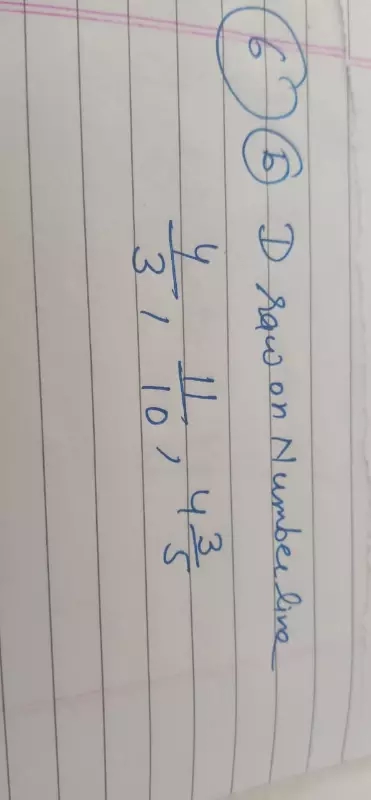 6 b Draw on Number line
4/3, 11/10, 4 3/5